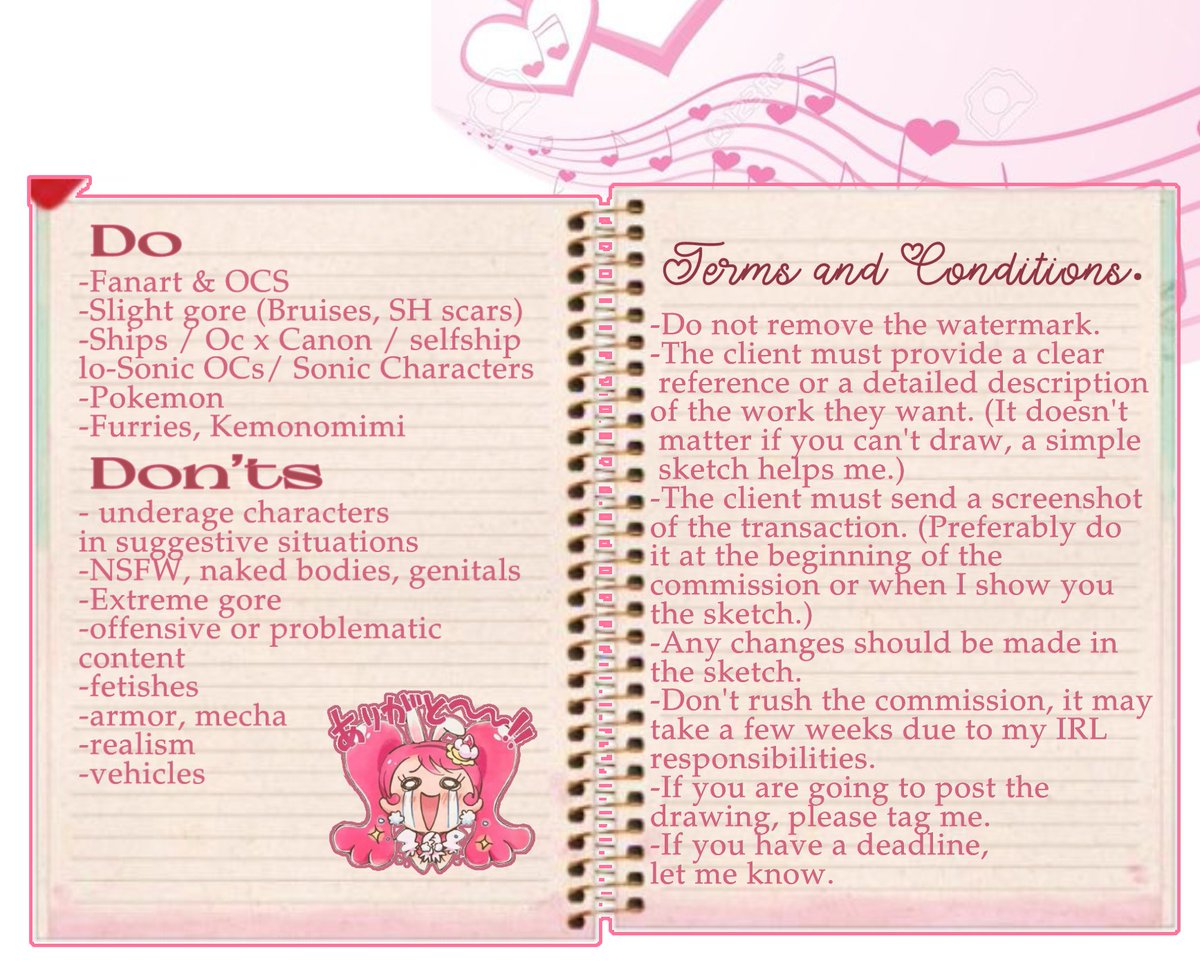 Do
-Fanart & OCS
-Slight gore (Bruises, SH scars)
-Ships / Oc x Canon / selfship
lo-Sonic OCs/ Sonic Characters
-Pokemon
-Furries, Kemonomimi
Don'ts
- underage characters
in suggestive situations
-NSFW, naked bodies, genitals
-Extreme gore
-offensive or problematic
content
-fetishes
-armor, mecha
-realism
-vehicles
ありがと〜〜!!
Terms and Conditions.
-Do not remove the watermark.
-The client must provide a clear
reference or a detailed description
of the work they want. (It doesn't
matter if you can't draw, a simple
sketch helps me.)
-The client must send a screenshot
of the transaction. (Preferably do
it at the beginning of the
commission or when I show you
the sketch.)
-Any changes should be made in
the sketch.
-Don't rush the commission, it may
take a few weeks due to my IRL
responsibilities.
-If you are going to post the
drawing, please tag me.
-If you have a deadline,
let me know.